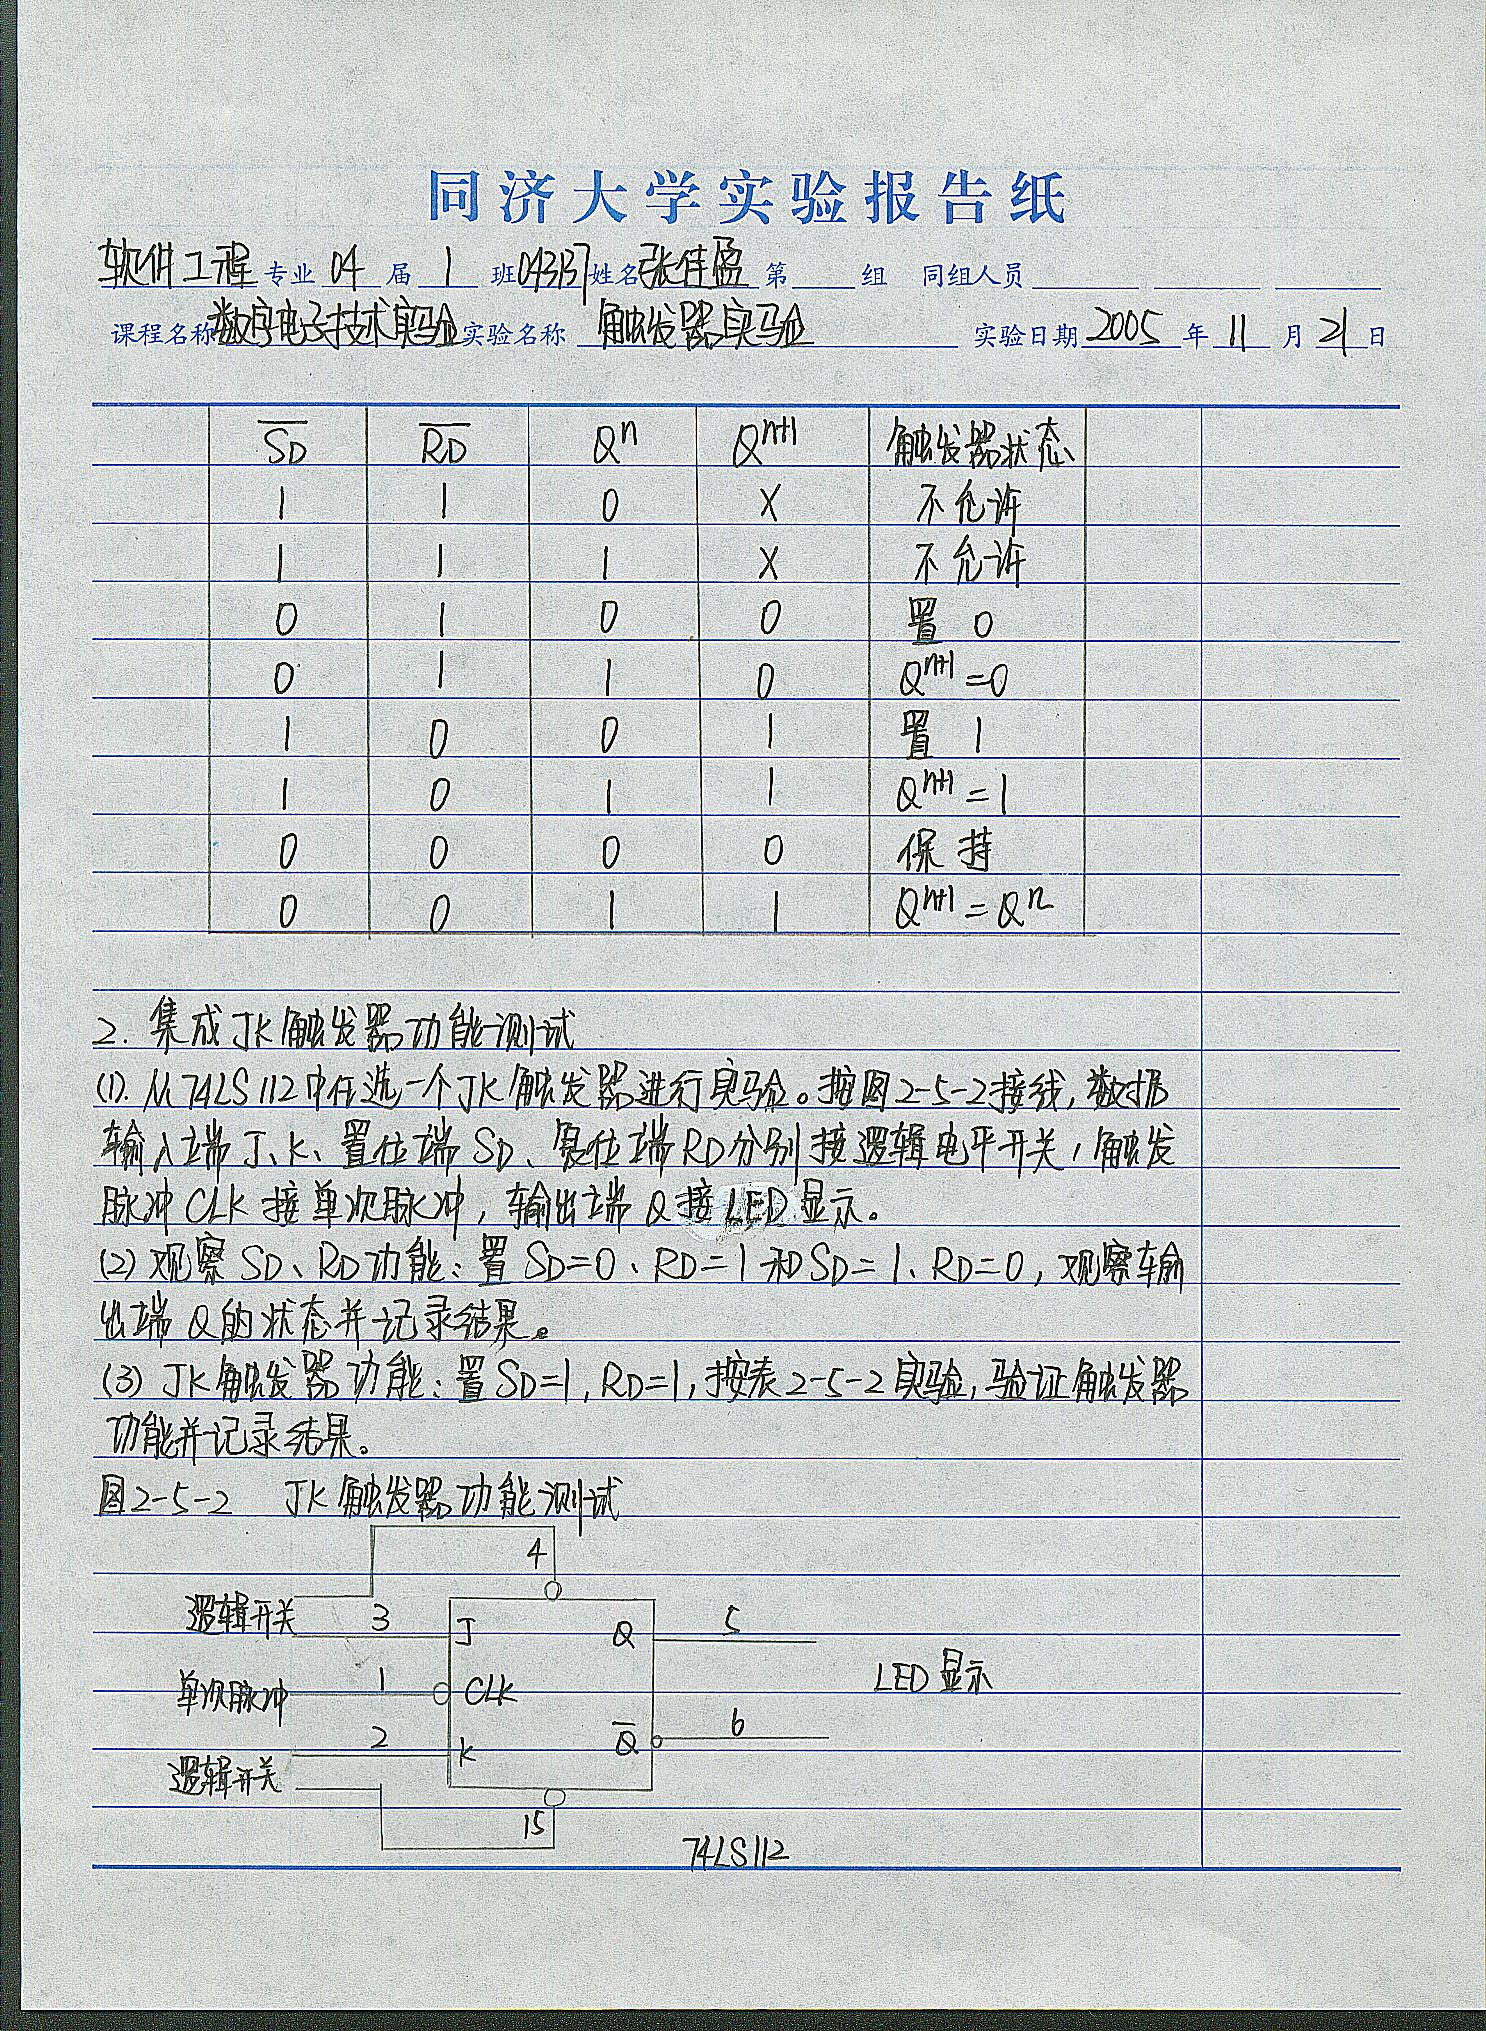 同济大学实验报告纸
软件工程专业 04 届 1 班 043137 姓名 张佳盈 第 组 同组人员
课程名称 数字电子技术实验 实验名称 触发器实验 实验日期 2005 年 11 月 21 日
S̅D̅ R̅D̅ Qⁿ Qⁿ⁺¹ 触发器状态
1 1 0 X 不允许
1 1 1 X 不允许
0 1 0 0 置 0
0 1 1 0 Qⁿ⁺¹=0
1 0 0 1 置 1
1 0 1 1 Qⁿ⁺¹=1
0 0 0 0 保持
0 0 1 1 Qⁿ⁺¹=Qⁿ
2. 集成JK触发器功能测试
(1). 从74LS112中任选一个JK触发器进行实验。按图2-5-2接线,数据
输入端J、K、置位端SD、复位端RD分别接逻辑电平开关,触发
脉冲CLK接单次脉冲,输出端Q接LED显示。
(2) 观察SD、RD功能:置SD=0、RD=1和SD=1、RD=0,观察输
出端Q的状态并记录结果。
(3) JK触发器功能:置SD=1,RD=1,按表2-5-2实验,验证触发器
功能并记录结果。
图2-5-2 JK触发器功能测试
4
逻辑开关 3 J Q 5
LED显示
单次脉冲 1 CLK
2 K Q̅ 6
逻辑开关
15
74LS112